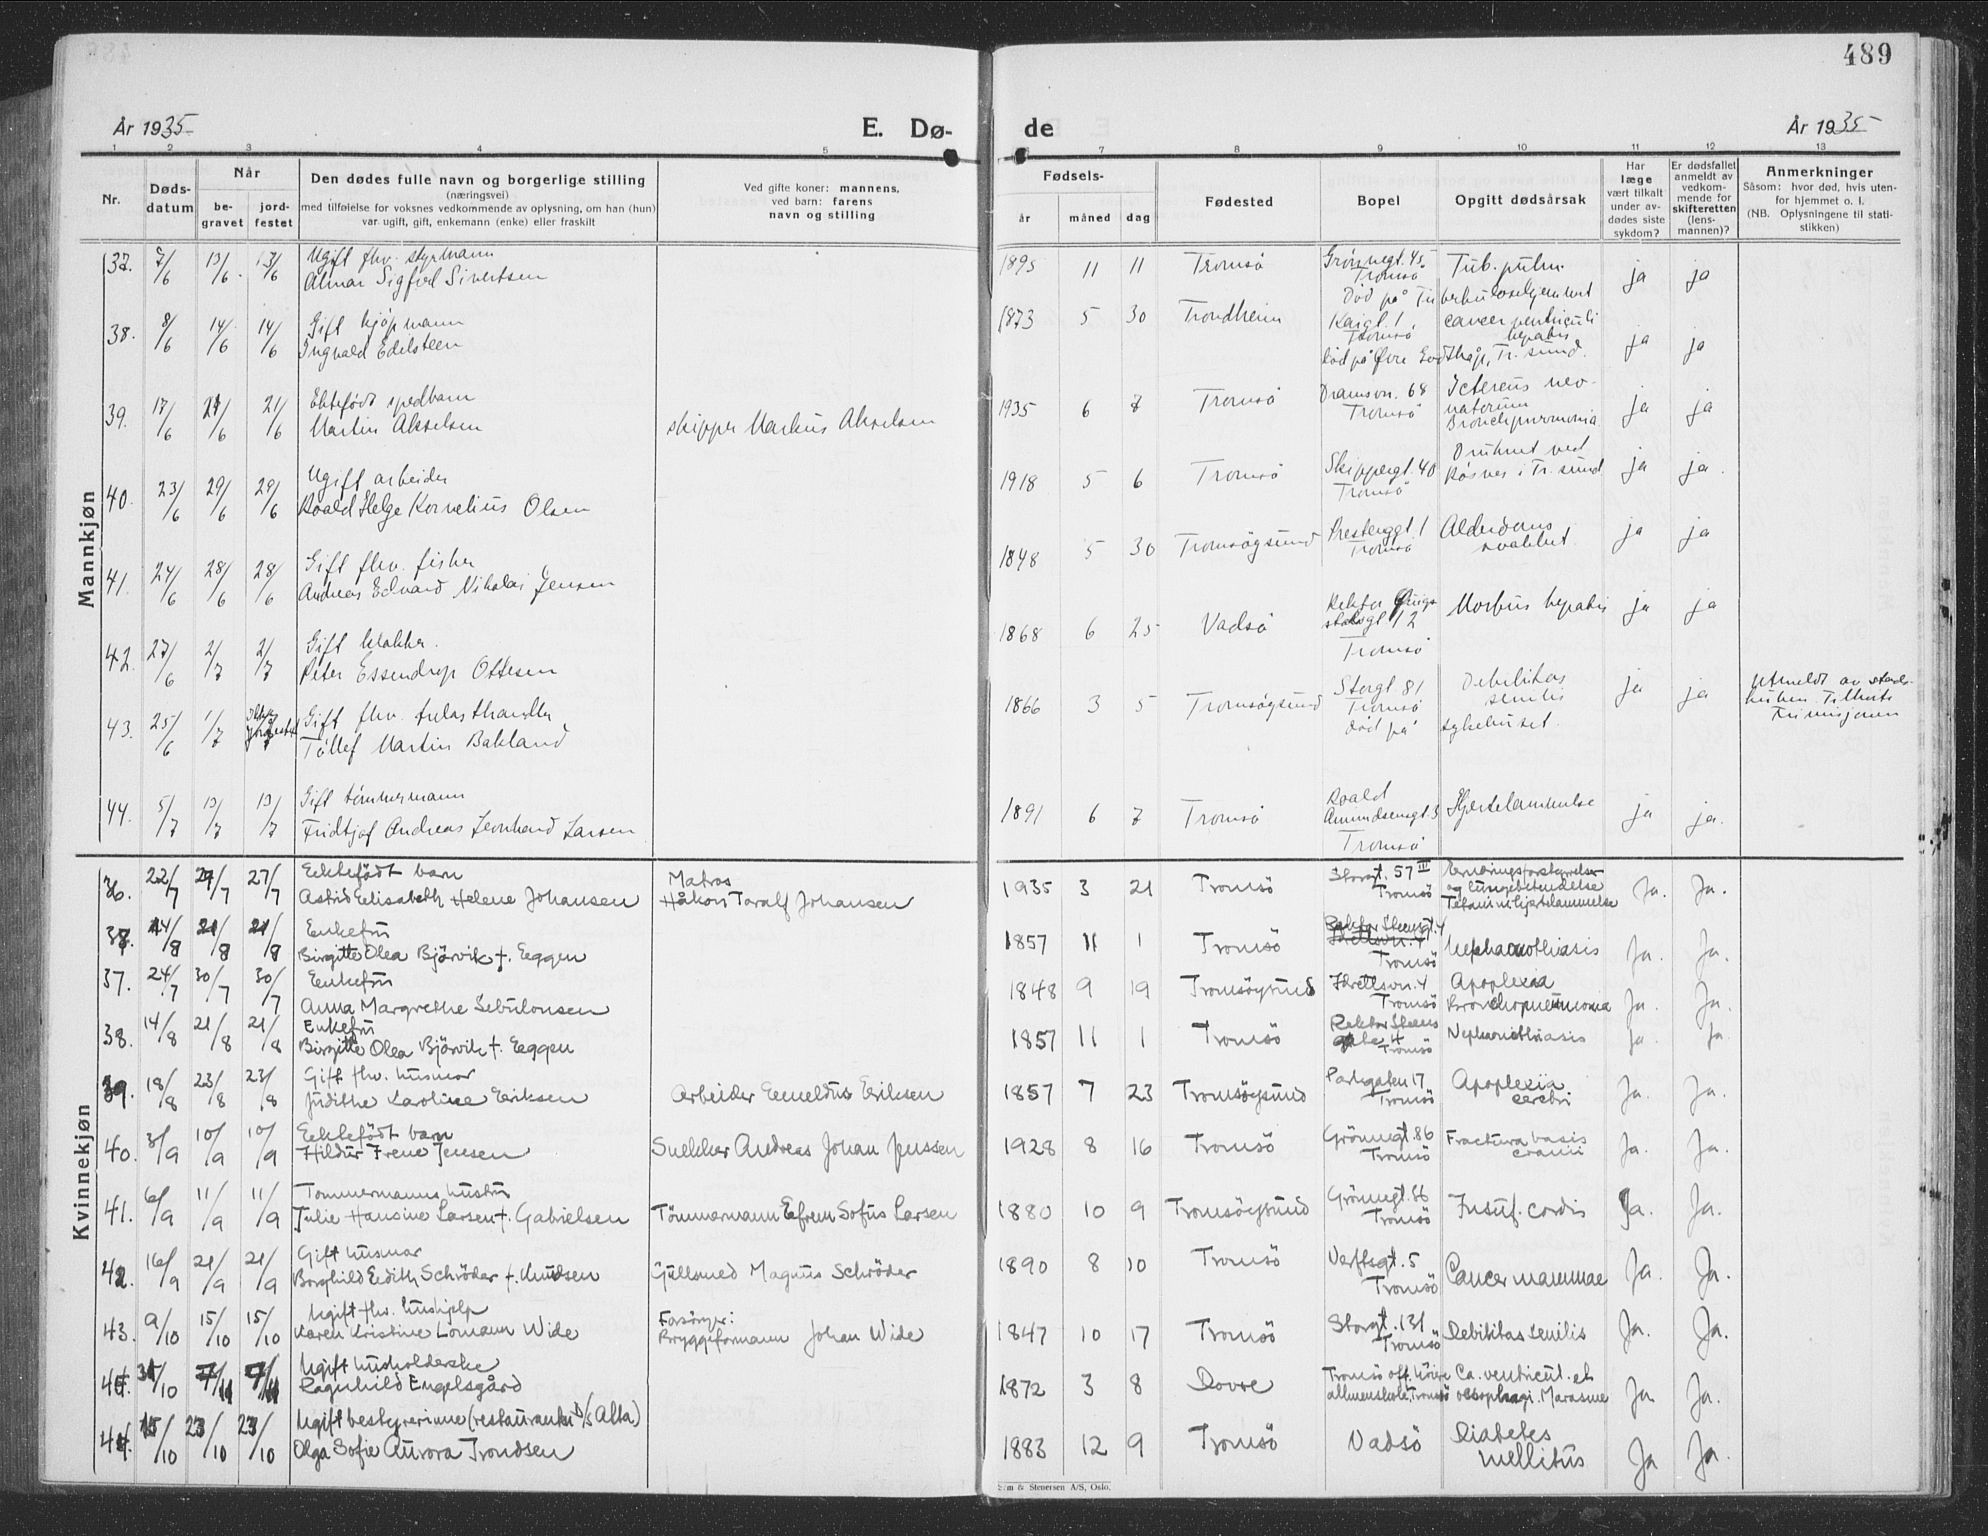 489
År 1935
E. Dø-
de
År 1935
1 2 3 4 5 6 7 8 9 10 11 12 13
Nr.
Døds-
datum
Når
be-
gravet
jord-
festet
Den dødes fulle navn og borgerlige stilling
(næringsvei)
med tilføielse for voksnes vedkommende av oplysning, om han (hun)
var ugift, gift, enkemann (enke) eller fraskilt
Ved gifte koner: mannens,
ved barn: farens
navn og stilling
Fødsels-
år måned dag
Fødested
Bopel
Opgitt dødsårsak
Har
læge
vært tilkalt
under av-
dødes siste
sykdom?
Er dødsfallet
anmeldt av
vedkom-
mende for
skifteretten
(lens-
mannen)?
Anmerkninger
Såsom: hvor død, hvis uten-
for hjemmet o. l.
(NB. Oplysningene til stati-
stikken)
Mannkjøn
37. 7/6 13/6 13/6 Ugift fhv. styrmann
Almar Sigfred Sivertsen
1895 11 11 Tromsö Grönnegt. 45 Tromsö Tub. pulm. ja ja
Död på Tuberkulosehjemmet
38. 8/6 14/6 14/6 Gift kjöpmann
Ingvald Edelsteen
1873 5 30 Trondheim Kaigt. 1 Tromsö cancer ventriculi hepatis ja ja
Död på Övre Godthåp, Tr. sund.
39. 17/6 21/6 21/6 Ektefödt spedbarn
Martin Akselsen
skipper Markus Akselsen
1935 6 8 Tromsö Dramsvn. 68 Tromsö Icterus neo-
natorum
Bronchpneumonia ja ja
40. 23/6 29/6 29/6 Ugift arbeider
Roald Helge Kornelius Olsen
1918 5 6 Tromsö Skippergt. 40 Tromsö Druknet ved
Råsnes i Tr. sund ja ja.
41. 24/6 28/6 28/6 Gift fhv. fisker
Andreas Edvard Nikolai Jensen
1848 5 30 Tromsöysund Presteggt. 1 Tromsö Alderdoms
svakhet. ja ja
42. 27/6 2/7 2/7 Gift
Peter Essendrop Ottesen
1868 6 25 Vadsö Rektor Qvigs
stadsgt 12
Tromsö Morbus hepatis ja ja
43. 25/6 1/7 Ikke jordfestet Gift fhv. trelasthandler
Tollef Martin Bakland
1866 3 5 Tromsöysund Storgt. 81
Tromsö Debilitas
senilis ja ja
död på sykehuset.
Utmeldt av stats-
kirken. Tilhörte
Frimisjonen
44. 5/7 13/7 13/7 Gift tömmermann
Fridtjof Andreas Leonhard Larsen
1891 6 7 Tromsö Roald
Amundsensgt. 3
Tromsö Hjertelammelse ja ja.
Kvinnekjøn
36. 22/7 27/7 27/7 Ektefödt barn
Astrid Elisabeth Helene Johansen
Matros
Håkon Taralf Johansen
1935 3 21 Tromsö Storgt. 57 III
Tromsö Ernæringsforstyrrelser
og lungebetendelse
Tetani m. hjertelammelse Ja. Ja.
37. 14/8 21/8 21/8 Enkefru
Birgitte Olea Björvik f. Eggen
1857 11 1 Tromsö Rektor Steensgt. 4
Idrettsvn. 4
Tromsö Nephrolithiasis Ja. Ja.
37. 24/7 30/7 30/7 Enkefru
Anna Margrethe Sebulonsen
1848 9 19 Tromsöysund Idrettsvn. 4
Tromsö Apoplexia
Bronchopneumonia Ja. Ja.
38. 14/8 21/8 21/8 Enkefru
Birgitte Olea Björvik f. Eggen
1857 11 1 Tromsö Rektor Steens
gate 4
Tromsö Nephrolithiasis Ja. Ja.
39. 18/8 23/8 23/8 Gift fhv. husmor
Judithe Karoline Eriksen
Arbeider Emeldus Eriksen
1857 7 23 Tromsöysund Parkgaten 17
Tromsö Apoplexia
cerebri Ja. Ja.
40. 3/9 10/9 10/9 Ektefödt barn
Hildur Irene Jensen
Snekker Andreas Johan Jenssen
1928 8 16 Tromsö Grönnegt. 86
Tromsö Fractura basis
cranii Ja. Ja.
41. 6/9 11/9 11/9 Tömmermanns hustru
Julie Hansine Larsen f. Gabrielsen
Tömmermann Efrem Sofus Larsen
1880 10 9 Tromsöysund Grönnegt. 86
Tromsö Insuf. cordis Ja. Ja.
42. 16/9 21/9 21/9 Gift husmor
Borghild Edith Schröder f. Knudsen
Gullsmed Magnus Schröder
1890 8 10 Tromsö Verftsgt. 5
Tromsö Cancer mammae Ja. Ja.
43. 9/10 15/10 15/10 Ugift fhv. hushjelp
Karen Kristine Lomann Wide
Forsörger:
Bryggeformann Johan Wide
1847 10 17 Tromsö Storgt. 131
Tromsö Debilitas senilis Ja. Ja.
44. 31/10 7/11 7/11 Ugift husholderske
Ragnhild Engelsgård
1872 3 8 Dovre Tromsö off. höiere
allmenskole, Tromsö Ca. ventricul. et
oesophagi. Marasme Ja Ja.
44. 15/10 23/10 23/10 Ugift bestyrerinne (restauranten D/S Alta)
Olga Sofie Aurora Trondsen
1883 12 9 Tromsö Vadsö Diabetes
mellitus Ja Ja.
Sem & Stenersen A/S, Oslo.